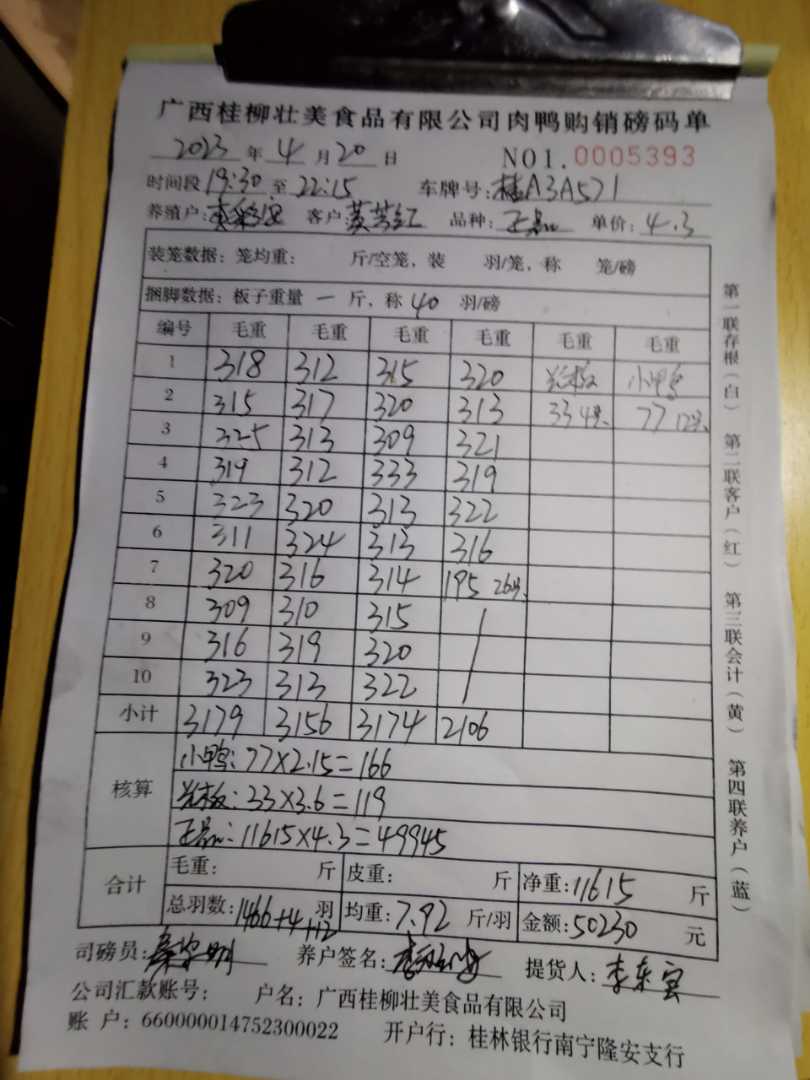 广西桂柳壮美食品有限公司肉鸭购销磅码单
2023 年 4 月 20 日 NO1.0005393
时间段 19:30 至 22:15 车牌号: 桂A3A571
养殖户: 客户 品种: 正品 单价: 4.3
装笼数据: 笼均重: 斤/空笼, 装 羽/笼, 称 笼/磅
捆脚数据: 板子重量 一 斤, 称 40 羽/磅
编号 毛重 毛重 毛重 毛重 毛重 毛重
1 318 312 315 320 光板 小鸭
2 315 317 320 313 33 4只 77 12只
3 325 313 309 321
4 319 312 333 319
5 323 320 313 322
6 311 324 313 316
7 320 316 314 195 26只
8 309 310 315 /
9 316 319 320 /
10 323 313 322 /
小计 3179 3156 3174 2106
核算
小鸭: 77×2.15=166
光板: 33×3.6=119
正品: 11615×4.3=49945
合计
毛重: 斤 皮重: 斤 净重: 11615 斤
总羽数: 1466+4+12 羽 均重: 7.92 斤/羽 金额: 50230 元
司磅员: 养户签名: 提货人:
公司汇款账号: 户名: 广西桂柳壮美食品有限公司
账 户: 660000014752300022 开户行: 桂林银行南宁隆安支行
第一联存根(白) 第二联客户(红) 第三联会计(黄) 第四联养户(蓝)